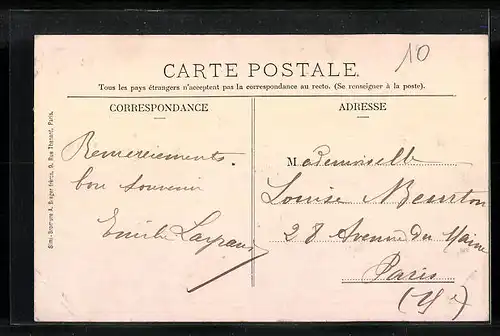 10
CARTE POSTALE.
Tous les pays étrangers n'acceptent pas la correspondance au recto. (Se renseigner à la poste).
CORRESPONDANCE
ADRESSE
Simi-Bromure A. Breger frères, 9, Rue Thénard, Paris.
Remerciements.
bon souvenir
Emile
Mademoiselle
Louise
28 Avenue du Maine
Paris